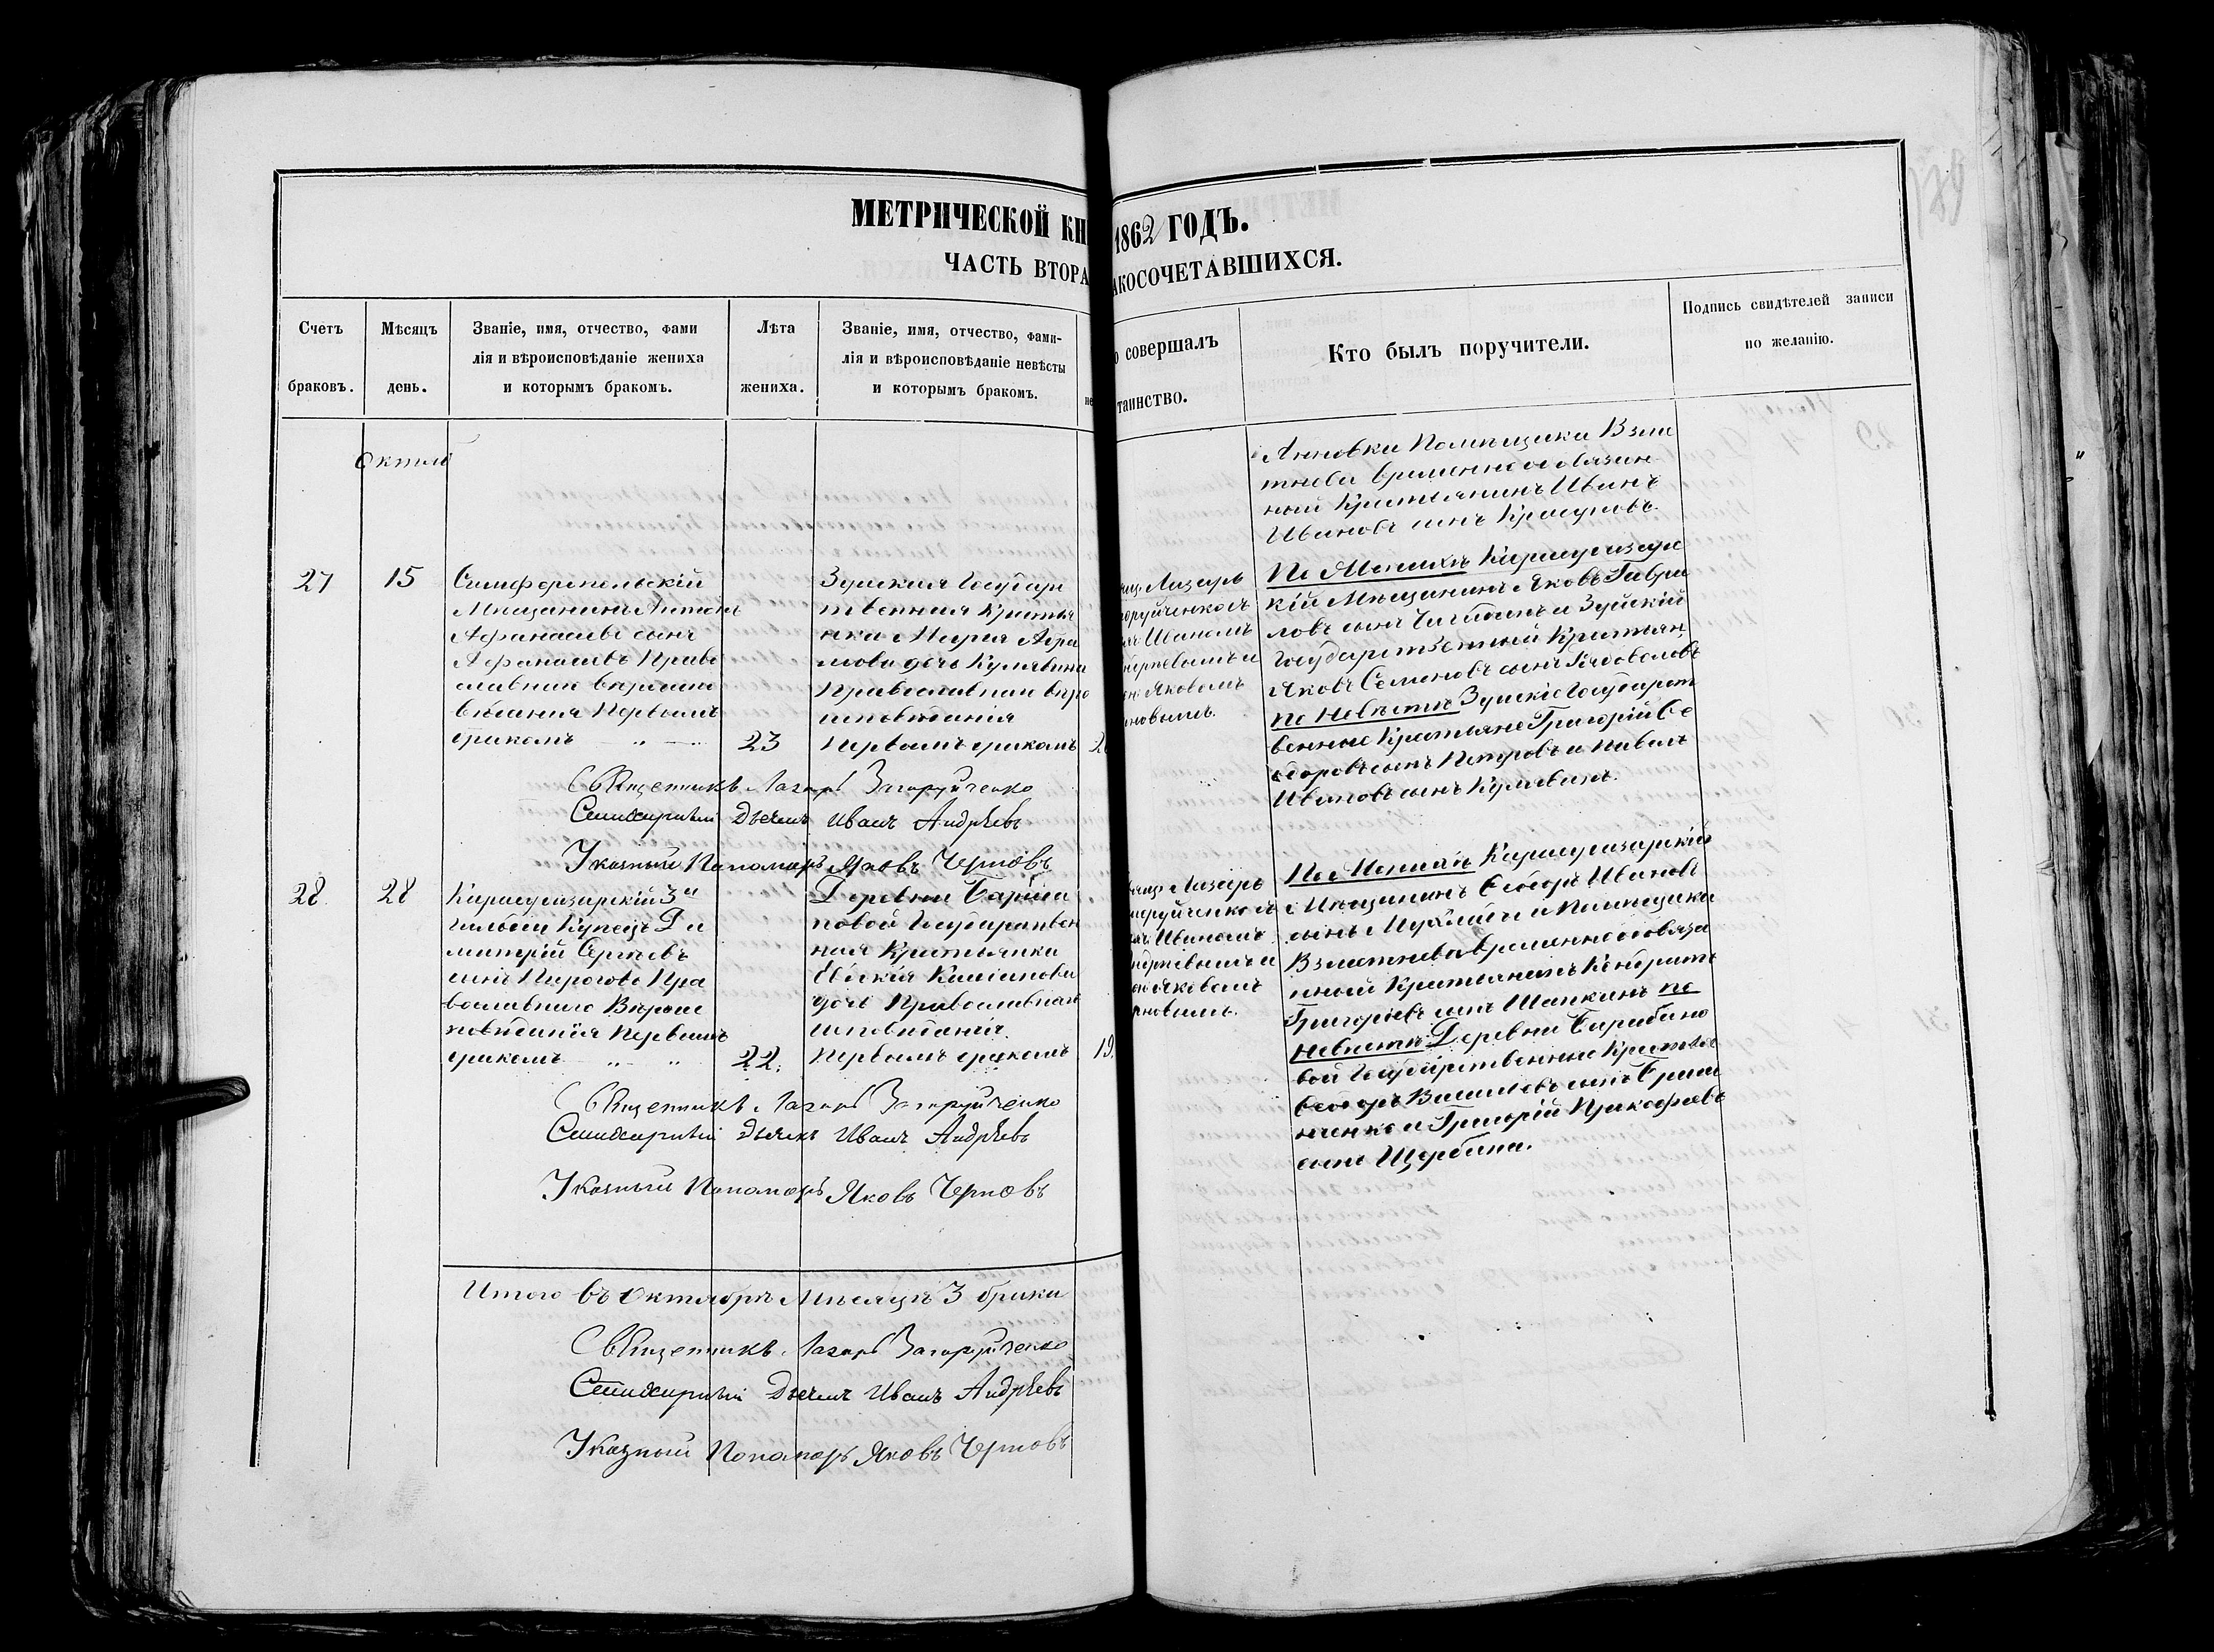 МЕТРИЧЕСКОЙ КН
1862 ГОДЪ.
ЧАСТЬ ВТОРА
АКОСОЧЕТАВШИХСЯ.
Счетъ
браковъ.
Мѣсяцъ
день.
Званіе, имя, отчество, фами
лія и вѣроисповѣданіе жениха
и которымъ бракомъ.
Лѣта
жениха.
Званіе, имя, отчество, фами-
лія и вѣроисповѣданіе невѣсты
и которымъ бракомъ.
о совершалъ
таинство.
Кто былъ поручители.
Подпись свидѣтелей записи
по желанію.
Анновки Помѣщика Взме
тнева временнообязан
ной Крестьянинъ Иванъ
Ивановъ сынъ
27
15
Симферопольскій
Мѣщанинъ Антонъ
Афанасіевъ сынъ
Афанасіевъ Право
славнаго вѣроиспо
вѣданія Первымъ
бракомъ
23
Зуйская Государ
твенная Крестья
нка Марія
дочь
Православнаго вѣро
исповѣданія
Первымъ бракомъ
Лазарь
Иваномъ
Яковомъ
По Женихѣ Карасубазарс
кій Мѣщанинъ Яковъ Гаври
ловъ сынъ и Зуйскій
Государственный Крестьян
Яковъ Семеновъ сынъ
по Невѣстѣ Зуйскіе Государст
венные Крестьяне Григорій Ѳе
доровъ сынъ Петровъ и Павелъ
Ивановъ сынъ
Священникъ Лазарь Загоруйченко
Дьячекъ Иванъ Андрѣевъ
Указный Пономарь Яковъ Черновъ
28
28
Карасубазарскій 3й
гильдіи Купецъ Ди
митрій Сергѣевъ
сынъ Пироговъ Пра
вославнаго Вѣроис
повѣданія Первымъ
бракомъ
22.
Деревни Бараба
новой Государствен
ная Крестьянка
Евдокія Касіянова
дочь Православнаго
исповѣданія
Первымъ бракомъ
19.
Лазарь
Иваномъ
Яковомъ
По Женихѣ Карасубазарскій
Мѣщанинъ Ѳедоръ Ивановъ
сынъ и Помѣщика
Взметнева временнообяза
нный Крестьянинъ Кондратъ
Григорьевъ сынъ Шапкинъ по
Невѣстѣ Деревни Барабано
вой Государственные Крестьяне
Ѳедоръ Василіевъ сынъ
и Григорій Прокофіевъ
сынъ Щербина.
Священникъ Лазарь Загоруйченко
Дьячекъ Иванъ Андрѣевъ
Указный Пономарь Яковъ Черновъ
Итого въ Октябрѣ Мѣсяцѣ 3 брака
Священникъ Лазарь Загоруйченко
Дьячекъ Иванъ Андрѣевъ
Указный Пономарь Яковъ Черновъ